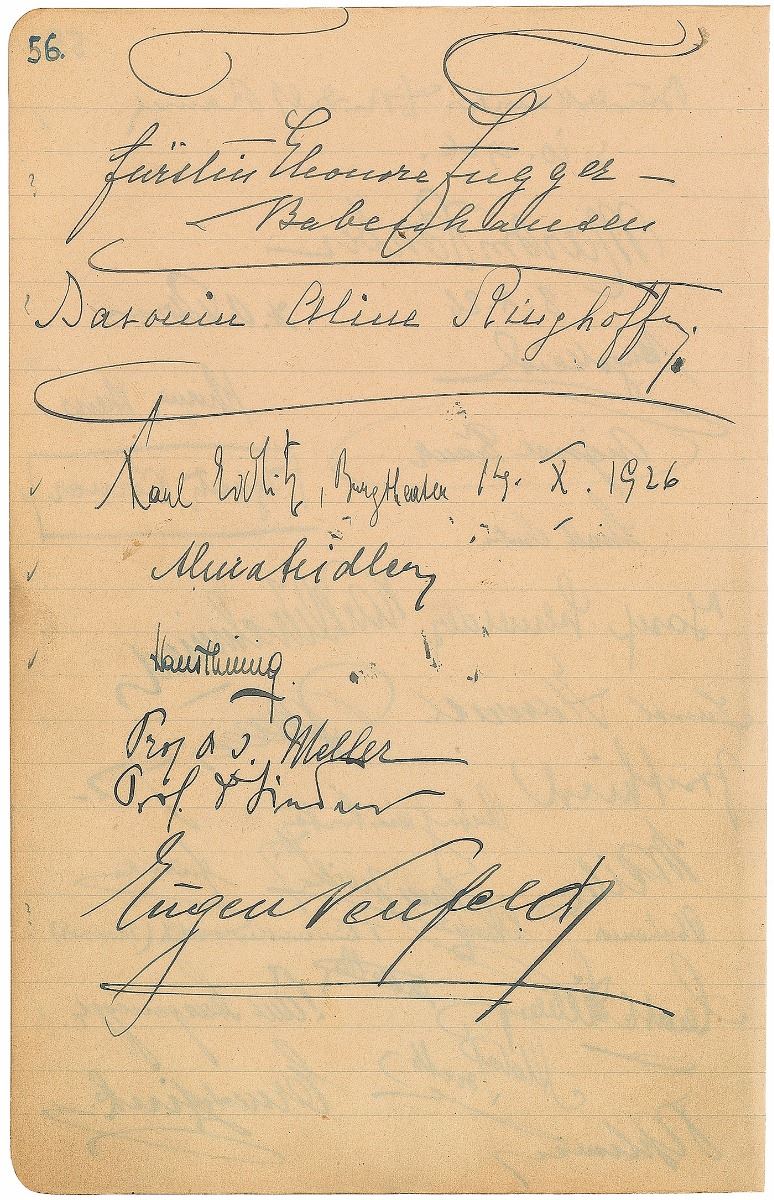 56.
Fürstin Eleonore Fugger –
Babenhausen
Baronin Celine Ringhoffer
Karl Eidlitz, Burgtheater 14. X. 1926
Alma Seidler
Hans Thimig
Prof. D. J. Meller
Prof. Dr Lindner
Eugen Neufeld